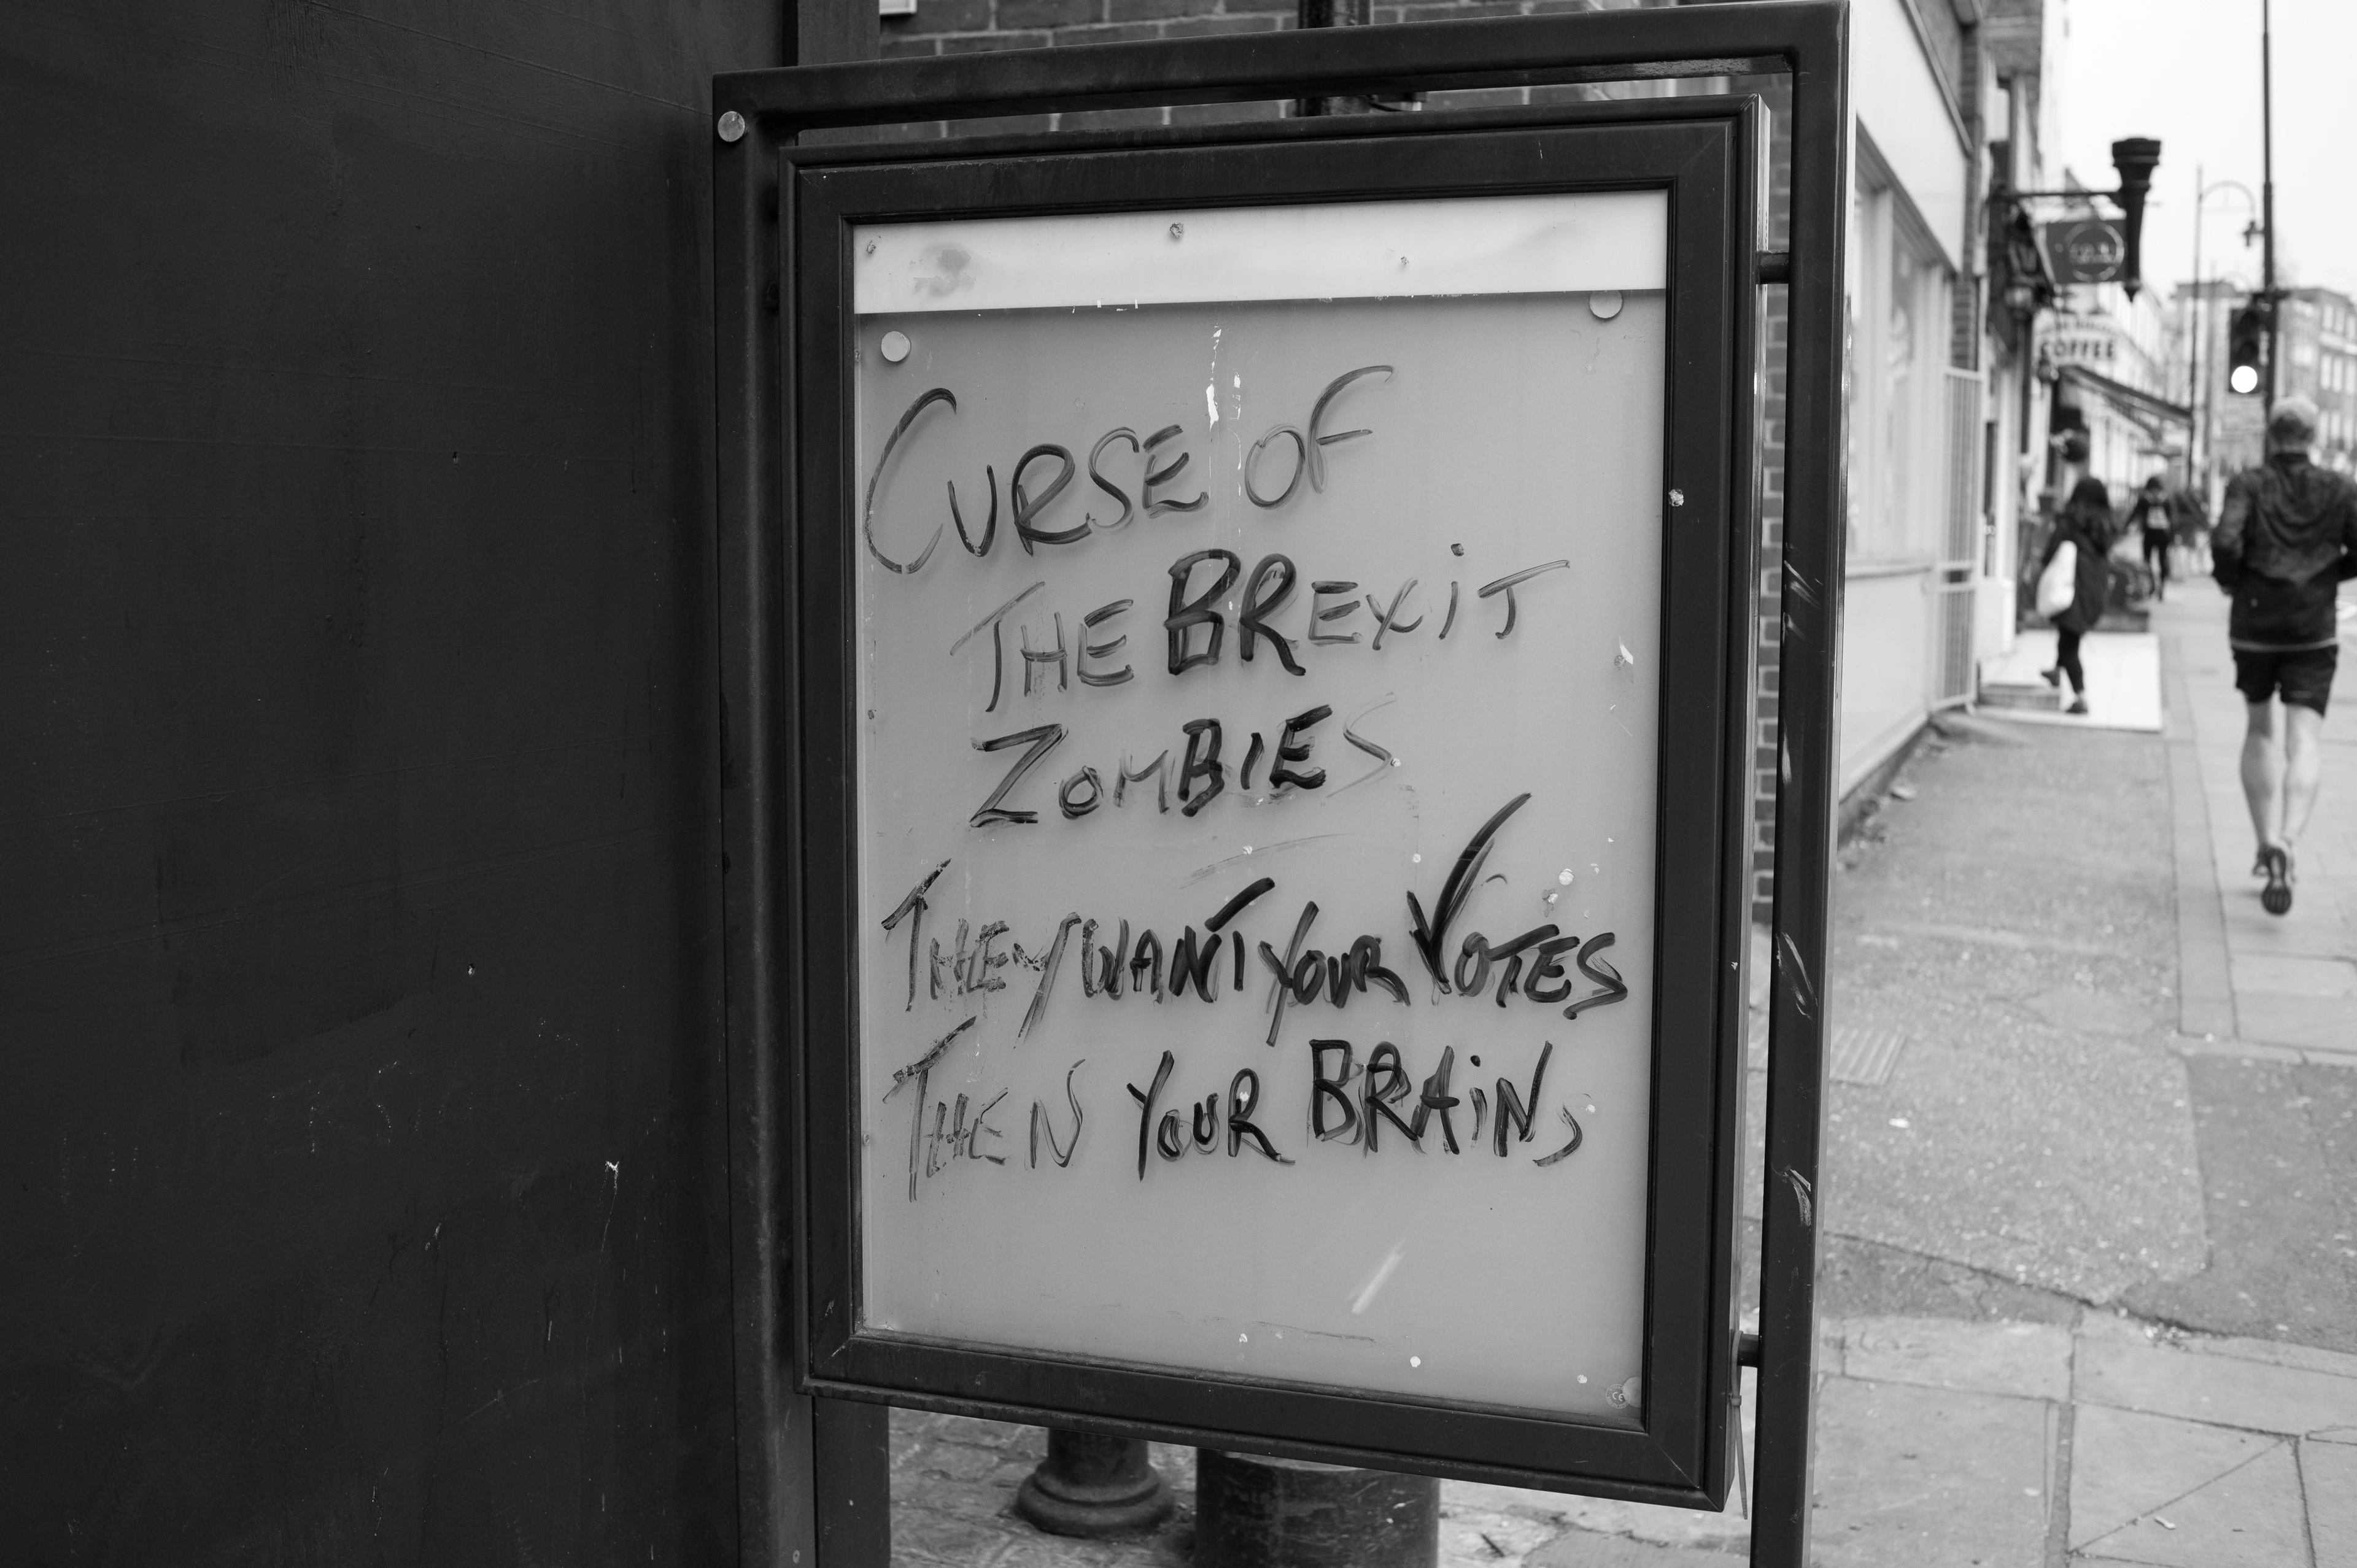 CURSE OF
THE BREXiT
ZOMBIES
THEY WANT YOUR VOTES
THEN YOUR BRAiNS
COFFEE